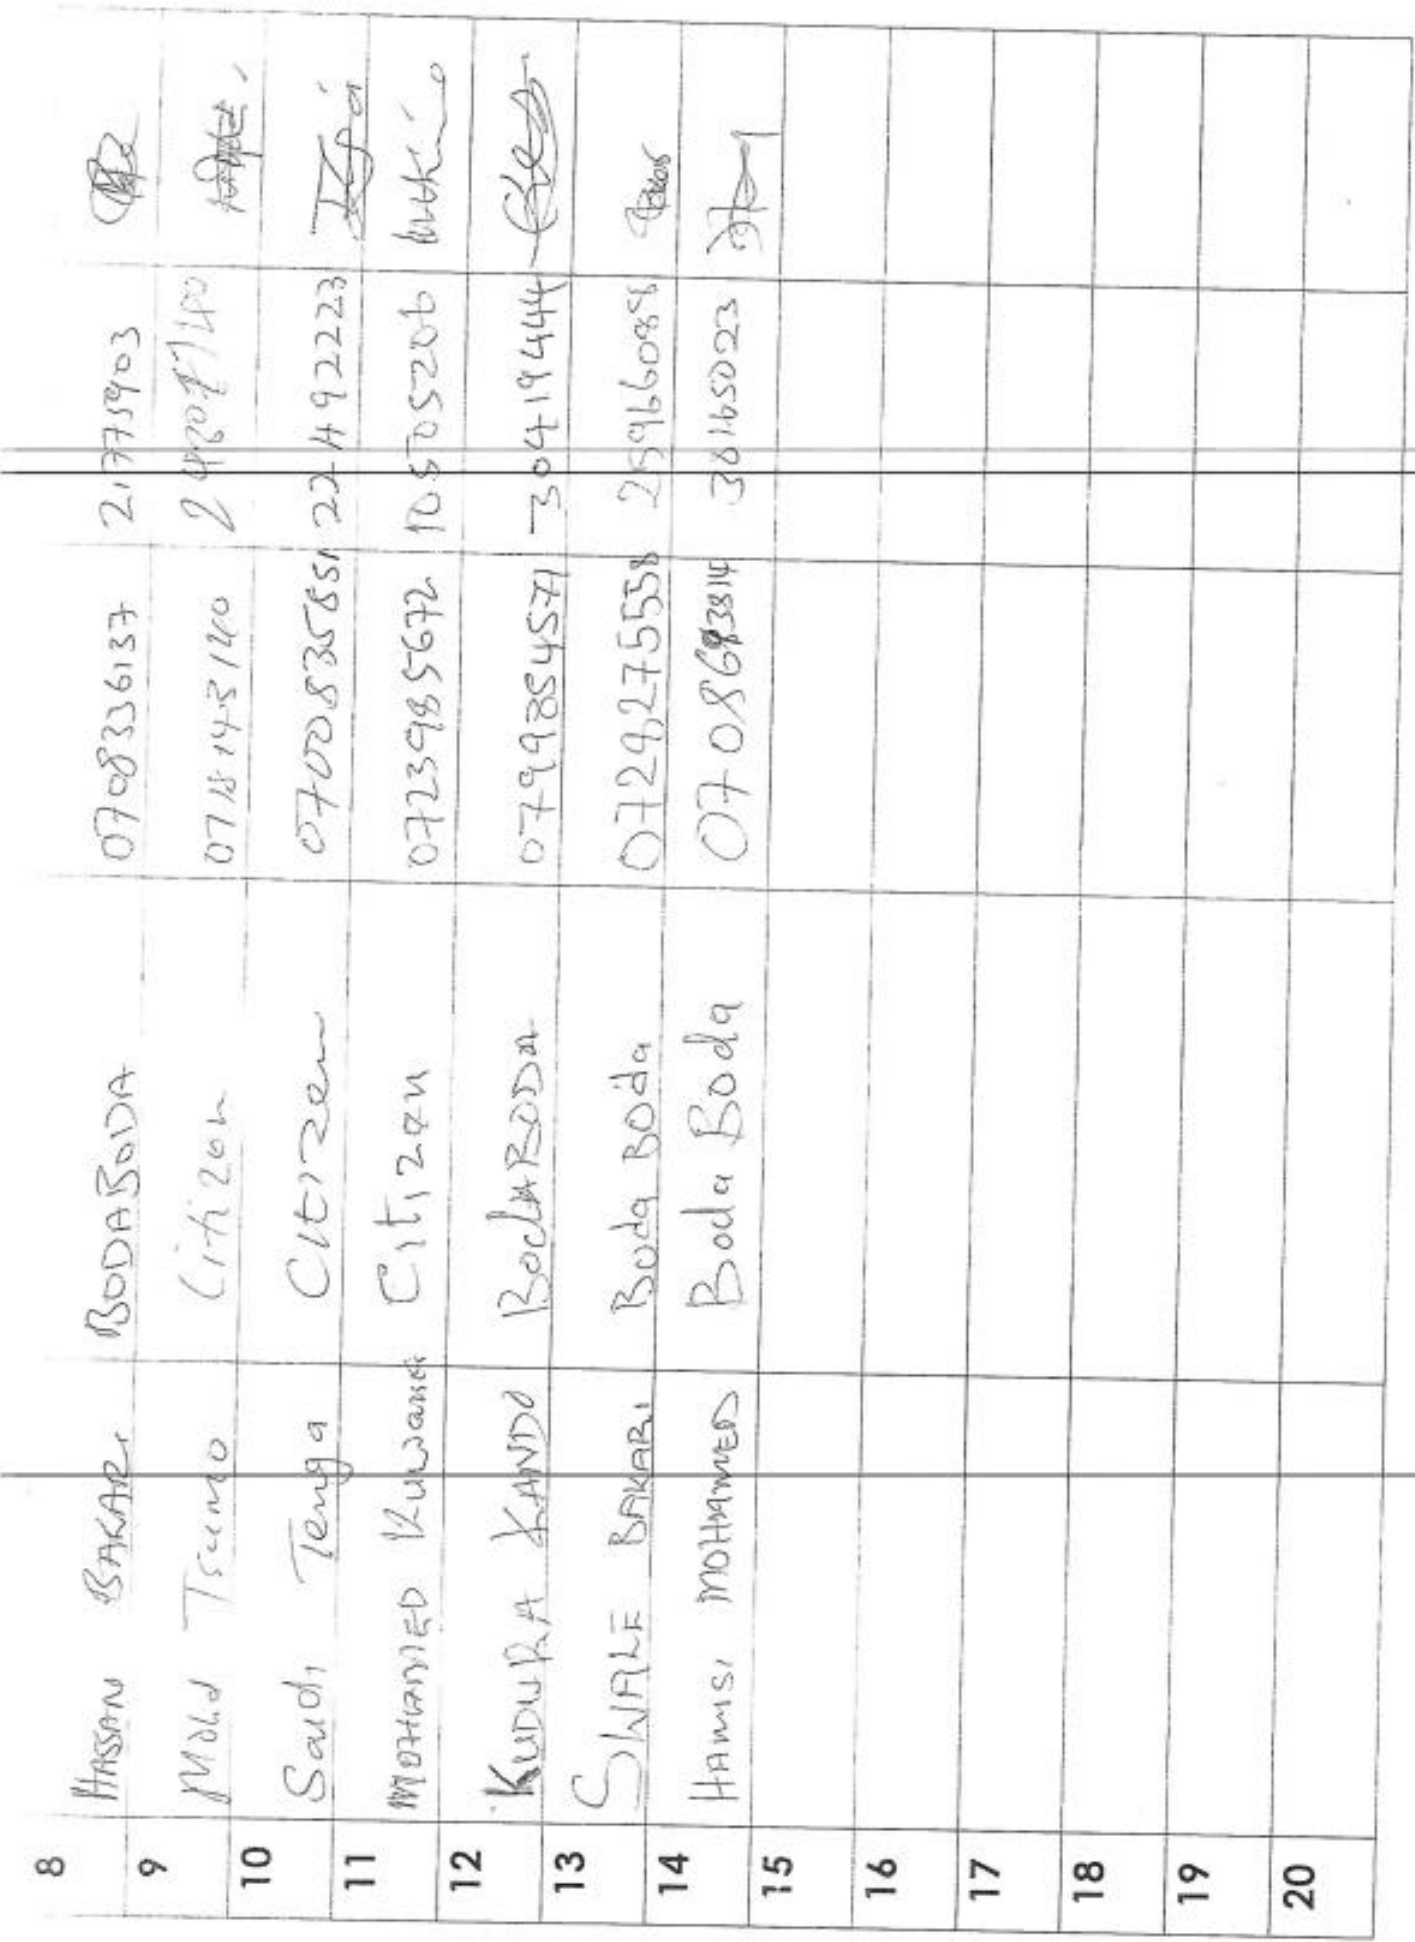 8 HASSAN BAKARI BODABODA 0708336137 21775903
9 Mohd Tsumo Citizen 0718143140
10 Saidi Tenga Citizen 0700835851 22492223
11 MOHAMED Citizen 0723985672 10505206
12 KUDURA KANDO BodABODA 0799854571 30419444
13 SWALE BAKARI Boda Boda 0729275558 25966088
14 HAMISI MOHAMED Boda Boda 38165023
15
16
17
18
19
20